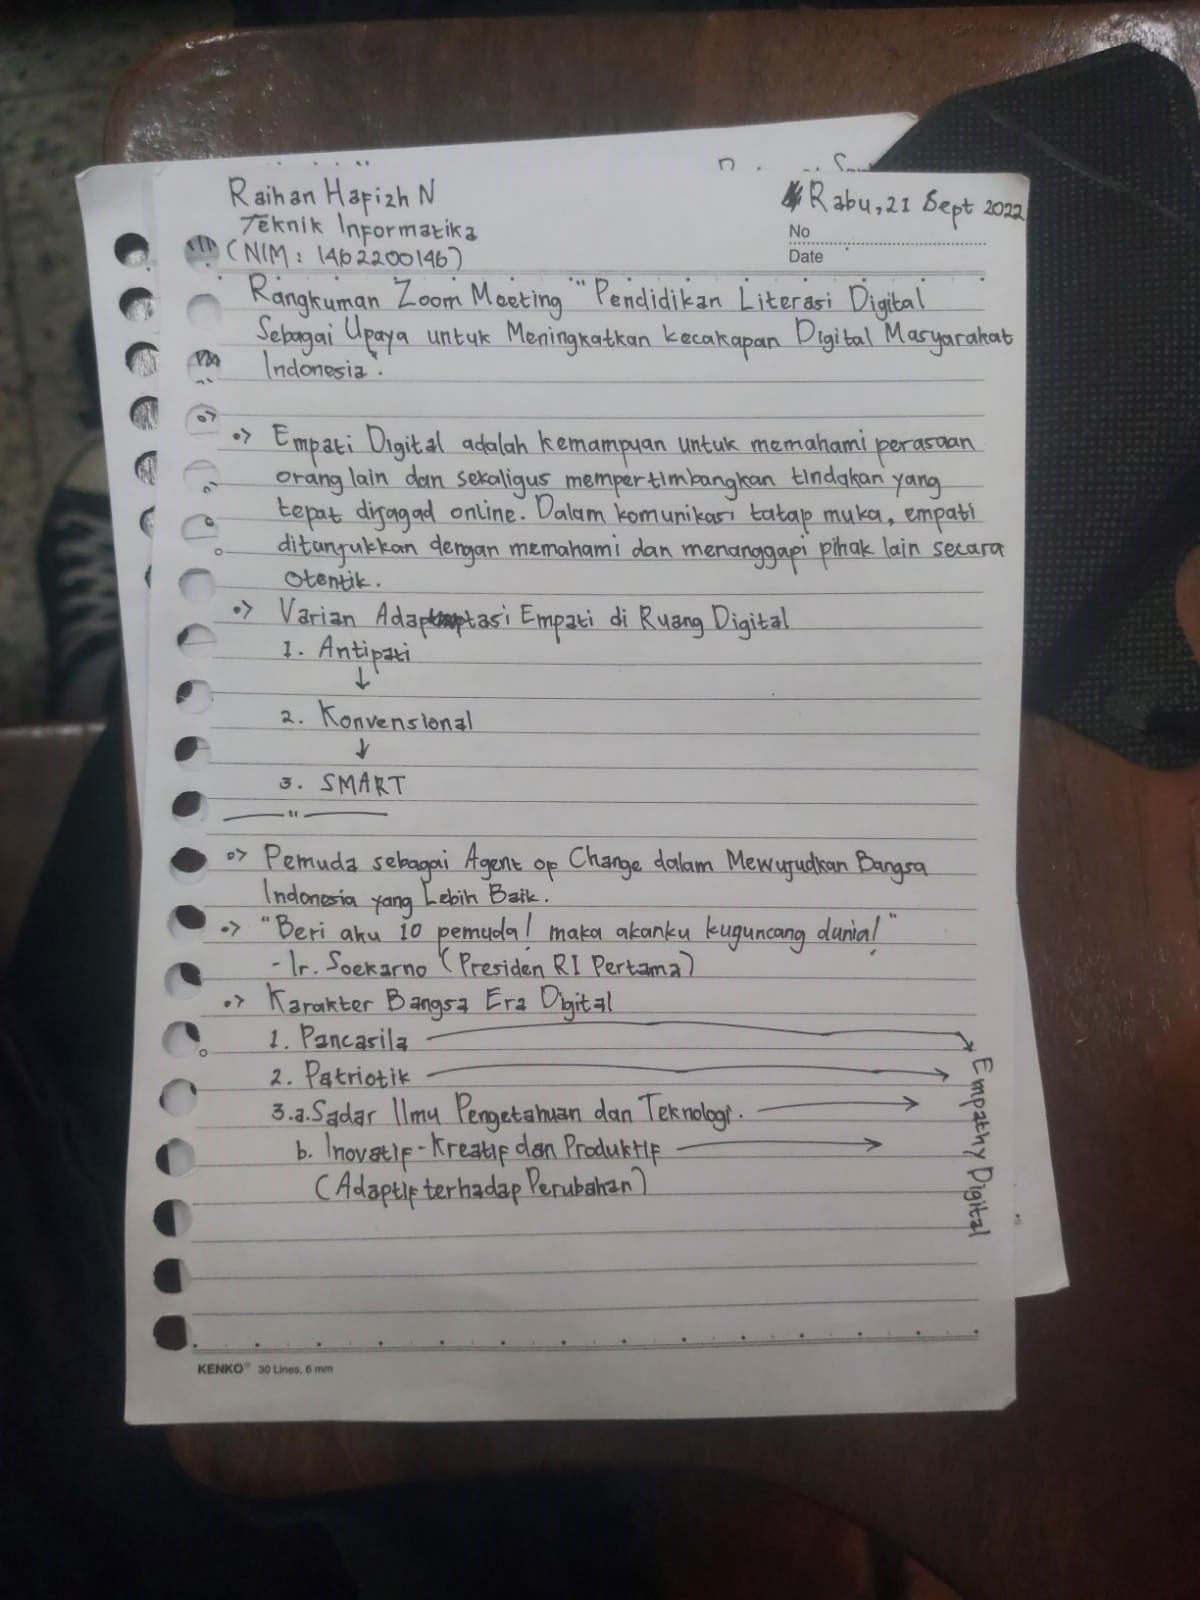 Raihan Hafizh N
Rabu, 21 Sept 2022
Teknik Informatika
No
(NIM: 1462200146)
Date
Rangkuman Zoom Meeting "Pendidikan Literasi Digital
Sebagai Upaya untuk Meningkatkan kecakapan Digital Masyarakat
Indonesia".
Empati Digital adalah kemampuan untuk memahami perasaan
orang lain dan sekaligus mempertimbangkan tindakan yang
tepat dijagad online. Dalam komunikasi tatap muka, empati
ditunjukkan dengan memahami dan menanggapi pihak lain secara
otentik.
Varian Adaptasi Empati di Ruang Digital
1. Antipati
↓
2. Konvensional
↓
3. SMART
Pemuda sebagai Agent of Change dalam Mewujudkan Bangsa
Indonesia yang Lebih Baik.
"Beri aku 10 pemuda! maka akanku kuguncang dunia!"
- Ir. Soekarno (Presiden RI Pertama)
Karakter Bangsa Era Digital
1. Pancasila →
2. Patriotik →
3.a. Sadar Ilmu Pengetahuan dan Teknologi. →
b. Inovatif-Kreatif dan Produktif →
(Adaptif terhadap Perubahan)
Empathy Digital
KENKO® 30 Lines, 6 mm